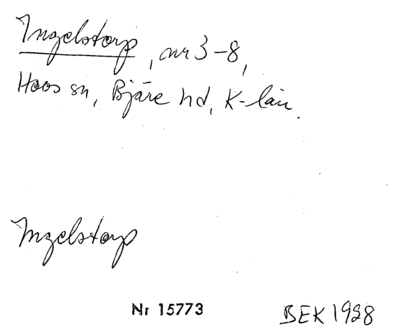 Ingelstorp, nr 3-8,
Hoos sn, Bjäre hd, K-län.
Ingelstorp
Nr 15773
BEK 1928